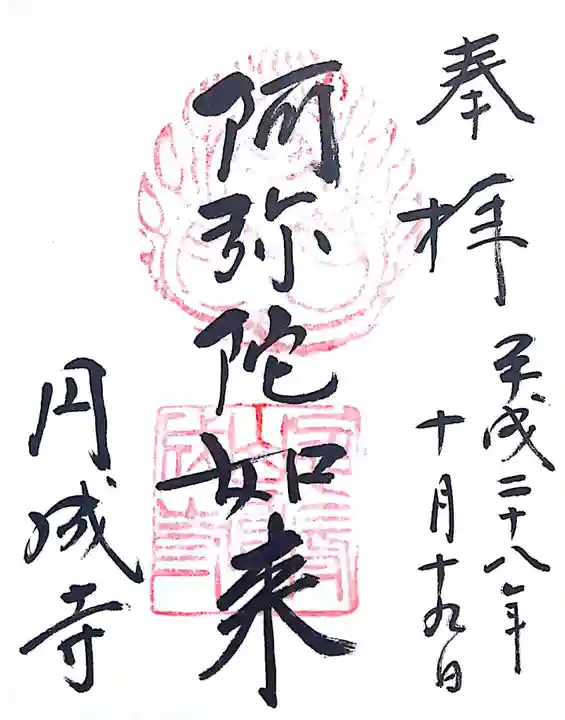 奉拝
平成二十八年
十月十九日
阿弥陀如来
円成寺